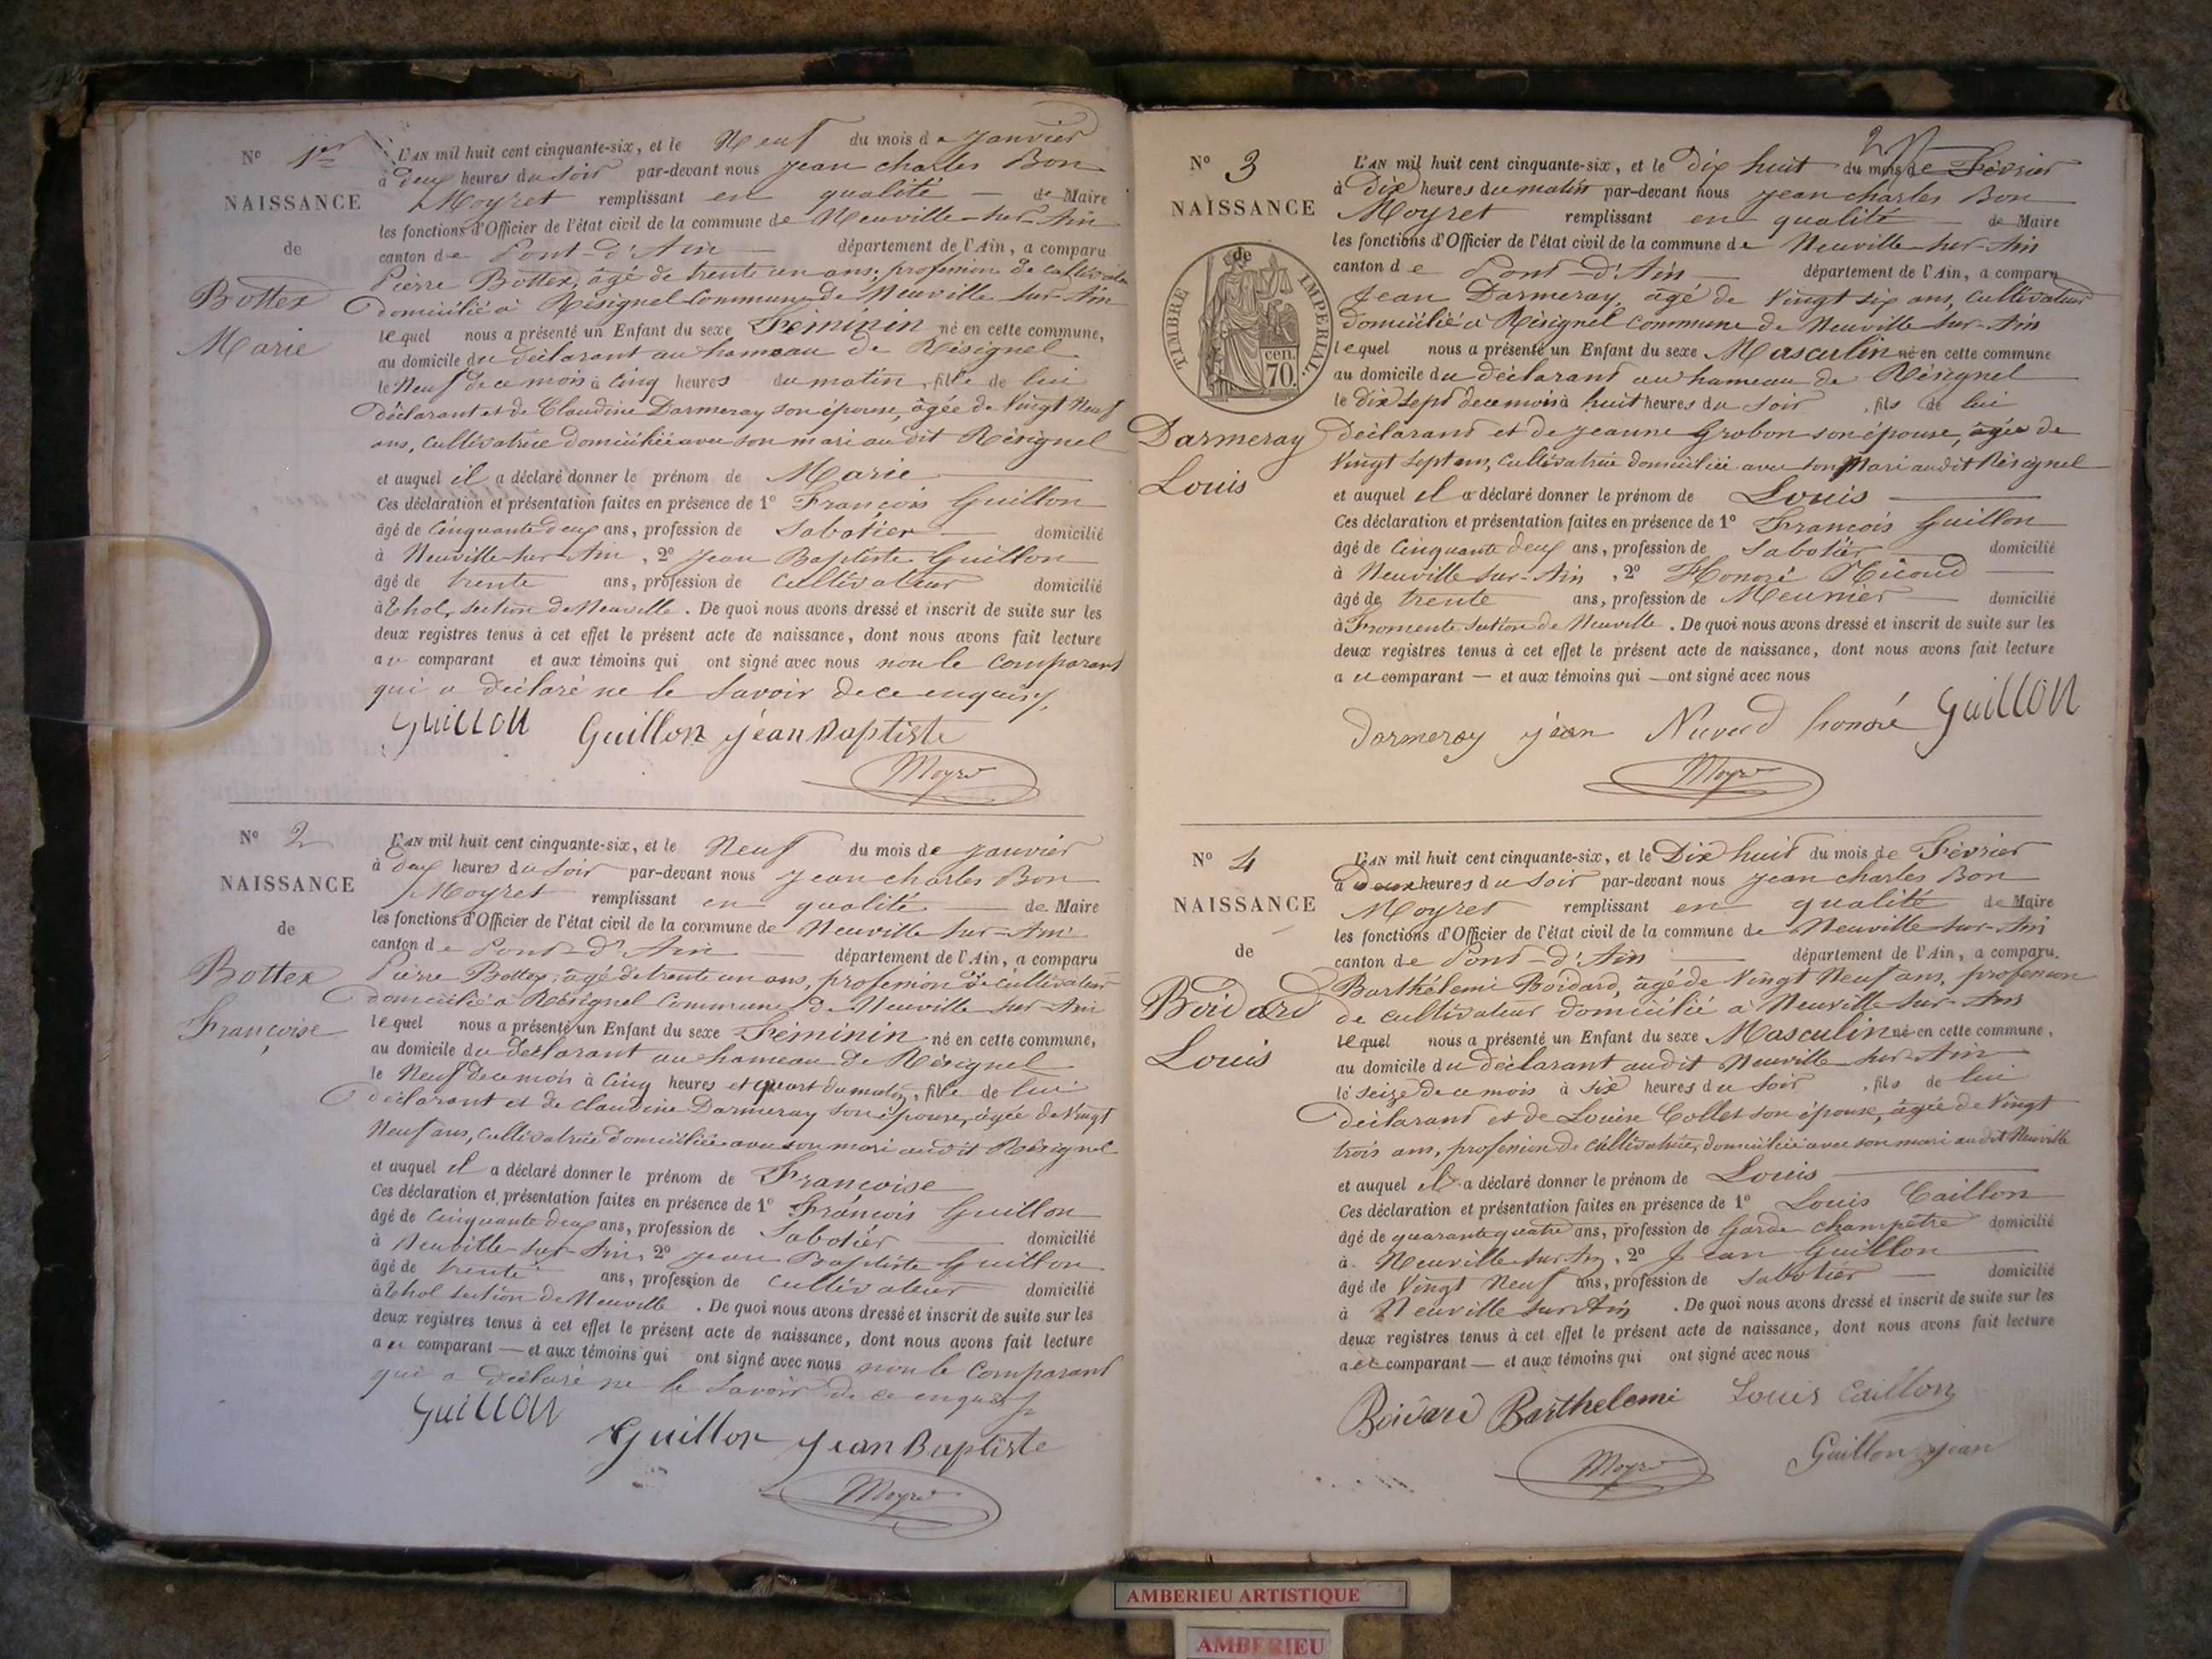 N° 1er
NAISSANCE
de
Bottex
Marie
L'AN mil huit cent cinquante-six, et le Neuf du mois de Janvier
à deux heures du soir par-devant nous Jean Charles Bon
Moyret remplissant en qualité de Maire
les fonctions d'Officier de l'état civil de la commune de Neuville-sur-Ain
canton de Pont-d'Ain département de l'Ain, a comparu
Pierre Bottex, âgé de trente un ans, profession de cultivateur
domicilié à Résignel Commune de Neuville sur-Ain
lequel nous a présenté un Enfant du sexe Féminin né en cette commune,
au domicile du déclarant au hameau de Résignel
le Neuf de ce mois à Cinq heures du matin, fille de lui
déclarant et de Claudine Darmeray son épouse, âgée de Vingt Neuf
ans, cultivatrice domiciliée avec son mari au dit Résignel
et auquel il a déclaré donner le prénom de Marie
Ces déclaration et présentation faites en présence de 1° François Guillon
âgé de Cinquante deux ans, profession de Sabotier domicilié
à Neuville-sur-Ain, 2° Jean Baptiste Guillon
âgé de trente ans, profession de cultivateur domicilié
à Thol, section de Neuville. De quoi nous avons dressé et inscrit de suite sur les
deux registres tenus à cet effet le présent acte de naissance, dont nous avons fait lecture
au comparant et aux témoins qui ont signé avec nous non le Comparant
qui a déclaré ne le savoir de ce enquis
Guillon Guillon jean Baptiste
Moyret
N° 2
NAISSANCE
de
Bottex
Françoise
L'AN mil huit cent cinquante-six, et le Neuf du mois de Janvier
à deux heures du soir par-devant nous Jean Charles Bon
Moyret remplissant en qualité de Maire
les fonctions d'Officier de l'état civil de la commune de Neuville sur-Ain
canton de Pont-d'Ain département de l'Ain, a comparu
Pierre Bottex, âgé de trente un ans, profession de cultivateur
domicilié à Résignel Commune de Neuville sur-Ain
lequel nous a présenté un Enfant du sexe Féminin né en cette commune,
au domicile du déclarant au hameau de Résignel
le Neuf de ce mois à Cinq heures et quart du matin, fille de lui
déclarant et de Claudine Darmeray son épouse, âgée de Vingt
Neuf ans, cultivatrice domiciliée avec son mari audit Résignel
et auquel il a déclaré donner le prénom de Françoise
Ces déclaration et présentation faites en présence de 1° François Guillon
âgé de Cinquante deux ans, profession de Sabotier domicilié
à Neuville-sur-Ain, 2° Jean Baptiste Guillon
âgé de trente ans, profession de cultivateur domicilié
à Thol section de Neuville. De quoi nous avons dressé et inscrit de suite sur les
deux registres tenus à cet effet le présent acte de naissance, dont nous avons fait lecture
au comparant — et aux témoins qui ont signé avec nous non le Comparant
qui a déclaré ne le savoir de ce enquis
Guillon
Guillon jean Baptiste
Moyret
N° 3
NAISSANCE
de
TIMBRE IMPERIAL
cen.
70.
Darmeray
Louis
L'AN mil huit cent cinquante-six, et le Dix huit du mois de Février
à Dix heures du matin par-devant nous Jean Charles Bon
Moyret remplissant en qualité de Maire
les fonctions d'Officier de l'état civil de la commune de Neuville-sur-Ain
canton de Pont-d'Ain département de l'Ain, a comparu
Jean Darmeray, âgé de Vingt six ans, cultivateur
domicilié à Résignel Commune de Neuville sur-Ain
lequel nous a présenté un Enfant du sexe Masculin né en cette commune
au domicile du déclarant au hameau de Résignel
le dix sept de ce mois à huit heures du soir, fils de lui
déclarant et de Jeanne Grobon son épouse, âgée de
Vingt Sept ans, cultivatrice domiciliée avec son Mari audit Résignel
et auquel il a déclaré donner le prénom de Louis
Ces déclaration et présentation faites en présence de 1° François Guillon
âgé de Cinquante deux ans, profession de Sabotier domicilié
à Neuville sur-Ain, 2° Honoré Nicoud
âgé de trente ans, profession de Meunier domicilié
à Fromente section de Neuville. De quoi nous avons dressé et inscrit de suite sur les
deux registres tenus à cet effet le présent acte de naissance, dont nous avons fait lecture
au comparant — et aux témoins qui — ont signé avec nous
Darmeray jean honoré Guillon
Moyret
N° 4
NAISSANCE
de
Boidard
Louis
L'AN mil huit cent cinquante-six, et le Dix huit du mois de Février
à Deux heures du soir par-devant nous Jean Charles Bon
Moyret remplissant en qualité de Maire
les fonctions d'Officier de l'état civil de la commune de Neuville-sur-Ain
canton de Pont-d'Ain département de l'Ain, a comparu.
Barthélemi Boidard, âgé de Vingt Neuf ans, profession
de cultivateur domicilié à Neuville sur-Ain
lequel nous a présenté un Enfant du sexe Masculin né en cette commune,
au domicile du déclarant audit Neuville-sur-Ain
le seize de ce mois à six heures du soir, fils de lui
déclarant et de Louise Collet son épouse, âgée de Vingt
trois ans, profession de cultivatrice, domiciliée avec son mari au dit Neuville
et auquel il a déclaré donner le prénom de Louis
Ces déclaration et présentation faites en présence de 1° Louis Caillon
âgé de quarante quatre ans, profession de Garde champêtre domicilié
à Neuville sur Ain, 2° Jean Guillon
âgé de Vingt Neuf ans, profession de Sabotier domicilié
à Neuville sur Ain. De quoi nous avons dressé et inscrit de suite sur les
deux registres tenus à cet effet le présent acte de naissance, dont nous avons fait lecture
au comparant — et aux témoins qui ont signé avec nous
Boidard Barthelemi Louis Caillon
Moyret Guillon jean
AMBERIEU ARTISTIQUE
AMBERIEU